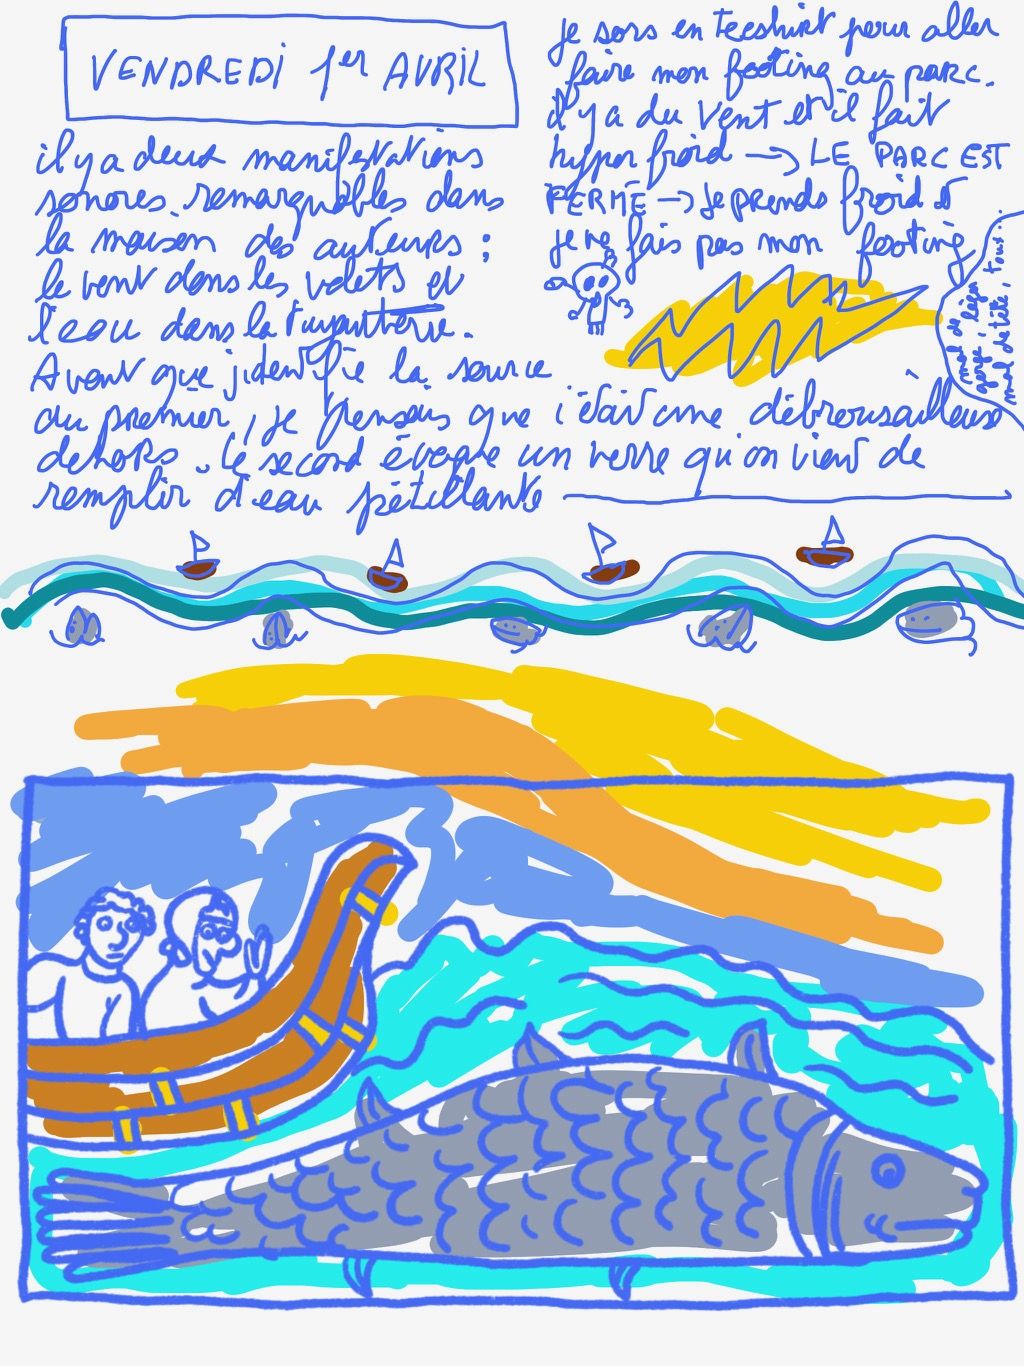 VENDREDI 1er AVRIL
il y a deux manifestations
sonores remarquables dans
la maison des auteurs :
le vent dans les volets et
l'eau dans la tuyauterie.
Avant que j'identifie la source
du premier, je pensais que c'était une débroussailleuse
dehors. le second évoque un verre qu'on vient de
remplir d'eau pétillante
je sors en teeshirt pour aller
faire mon footing au parc.
il y a du vent et il fait
hyper froid → LE PARC EST
FERMÉ → je prends froid et
je ne fais pas mon footing
mal de
gorge, léger
mal de tête, toux.